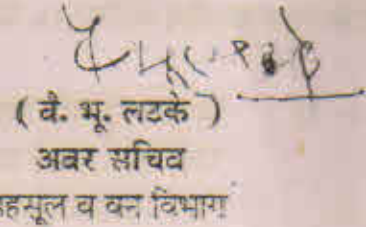 ( वै. भू. लटके )
अवर सचिव
हसूल व वन विभाग